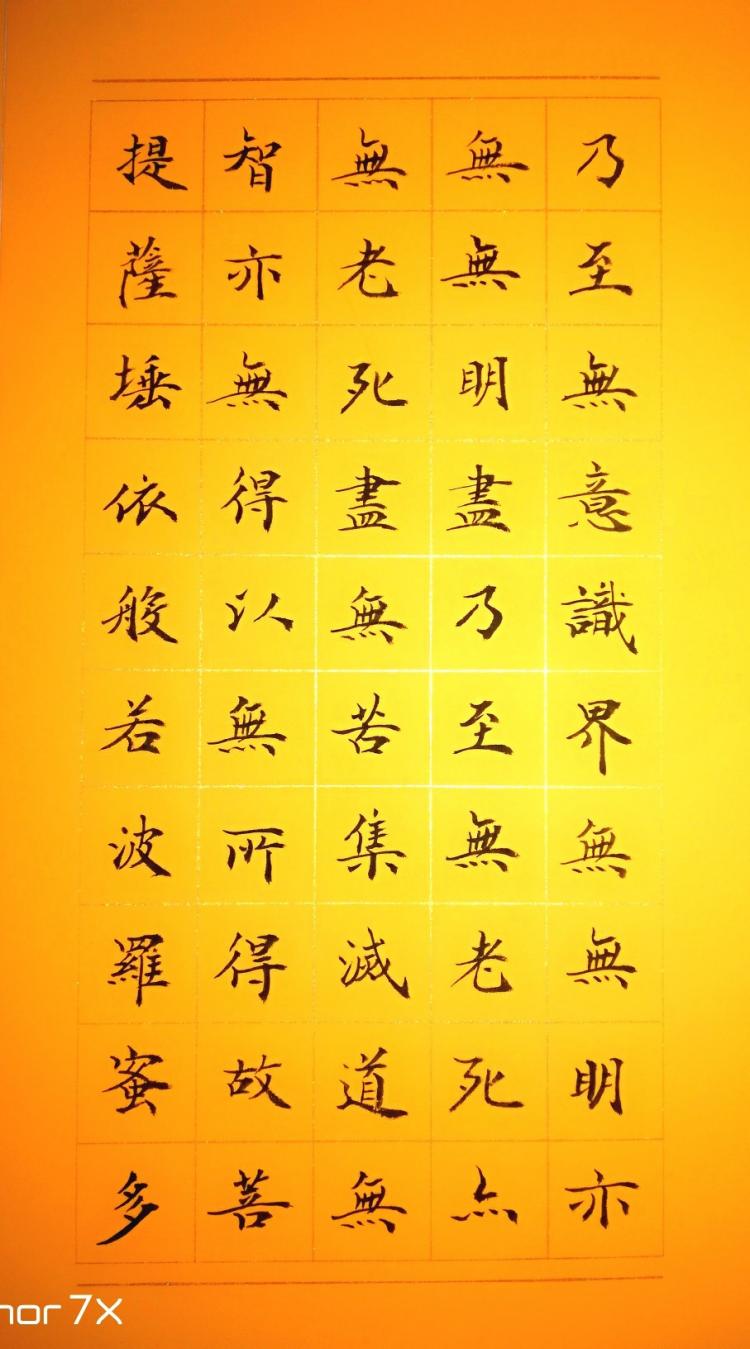 乃至無意識界無無明亦
無無明盡乃至無老死亦
無老死盡無苦集滅道無
智亦無得以無所得故菩
提薩埵依般若波羅蜜多
nor 7X